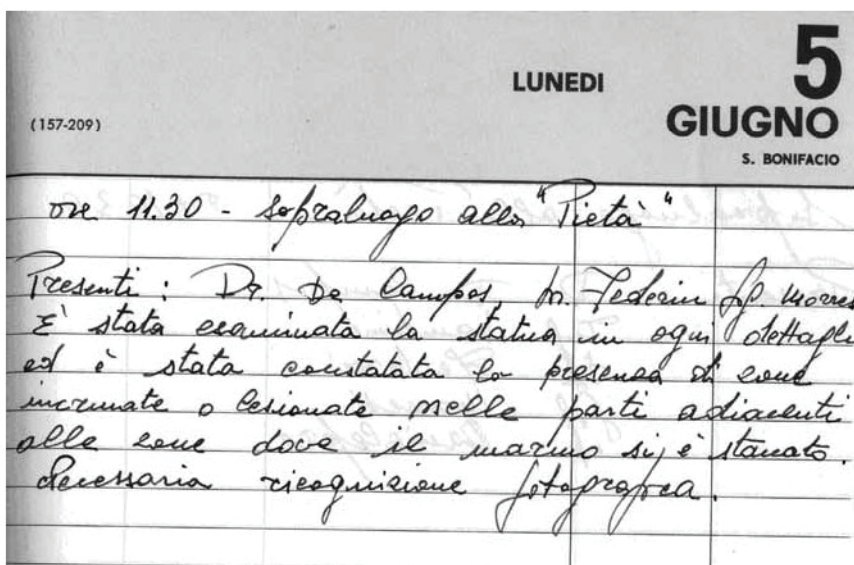 LUNEDI
5
GIUGNO
(157-209)
S. BONIFACIO
ore 11.30 - sopraluogo alla "Pietà"
Presenti: Dr. De Campos, Federici
È stata esaminata la statua in ogni dettagli
ed è stata constatata la presenza di zone
incrinate o lesionate nelle parti adiacenti
alle zone dove il marmo si è staccato.
Necessaria ricognizione fotografica.